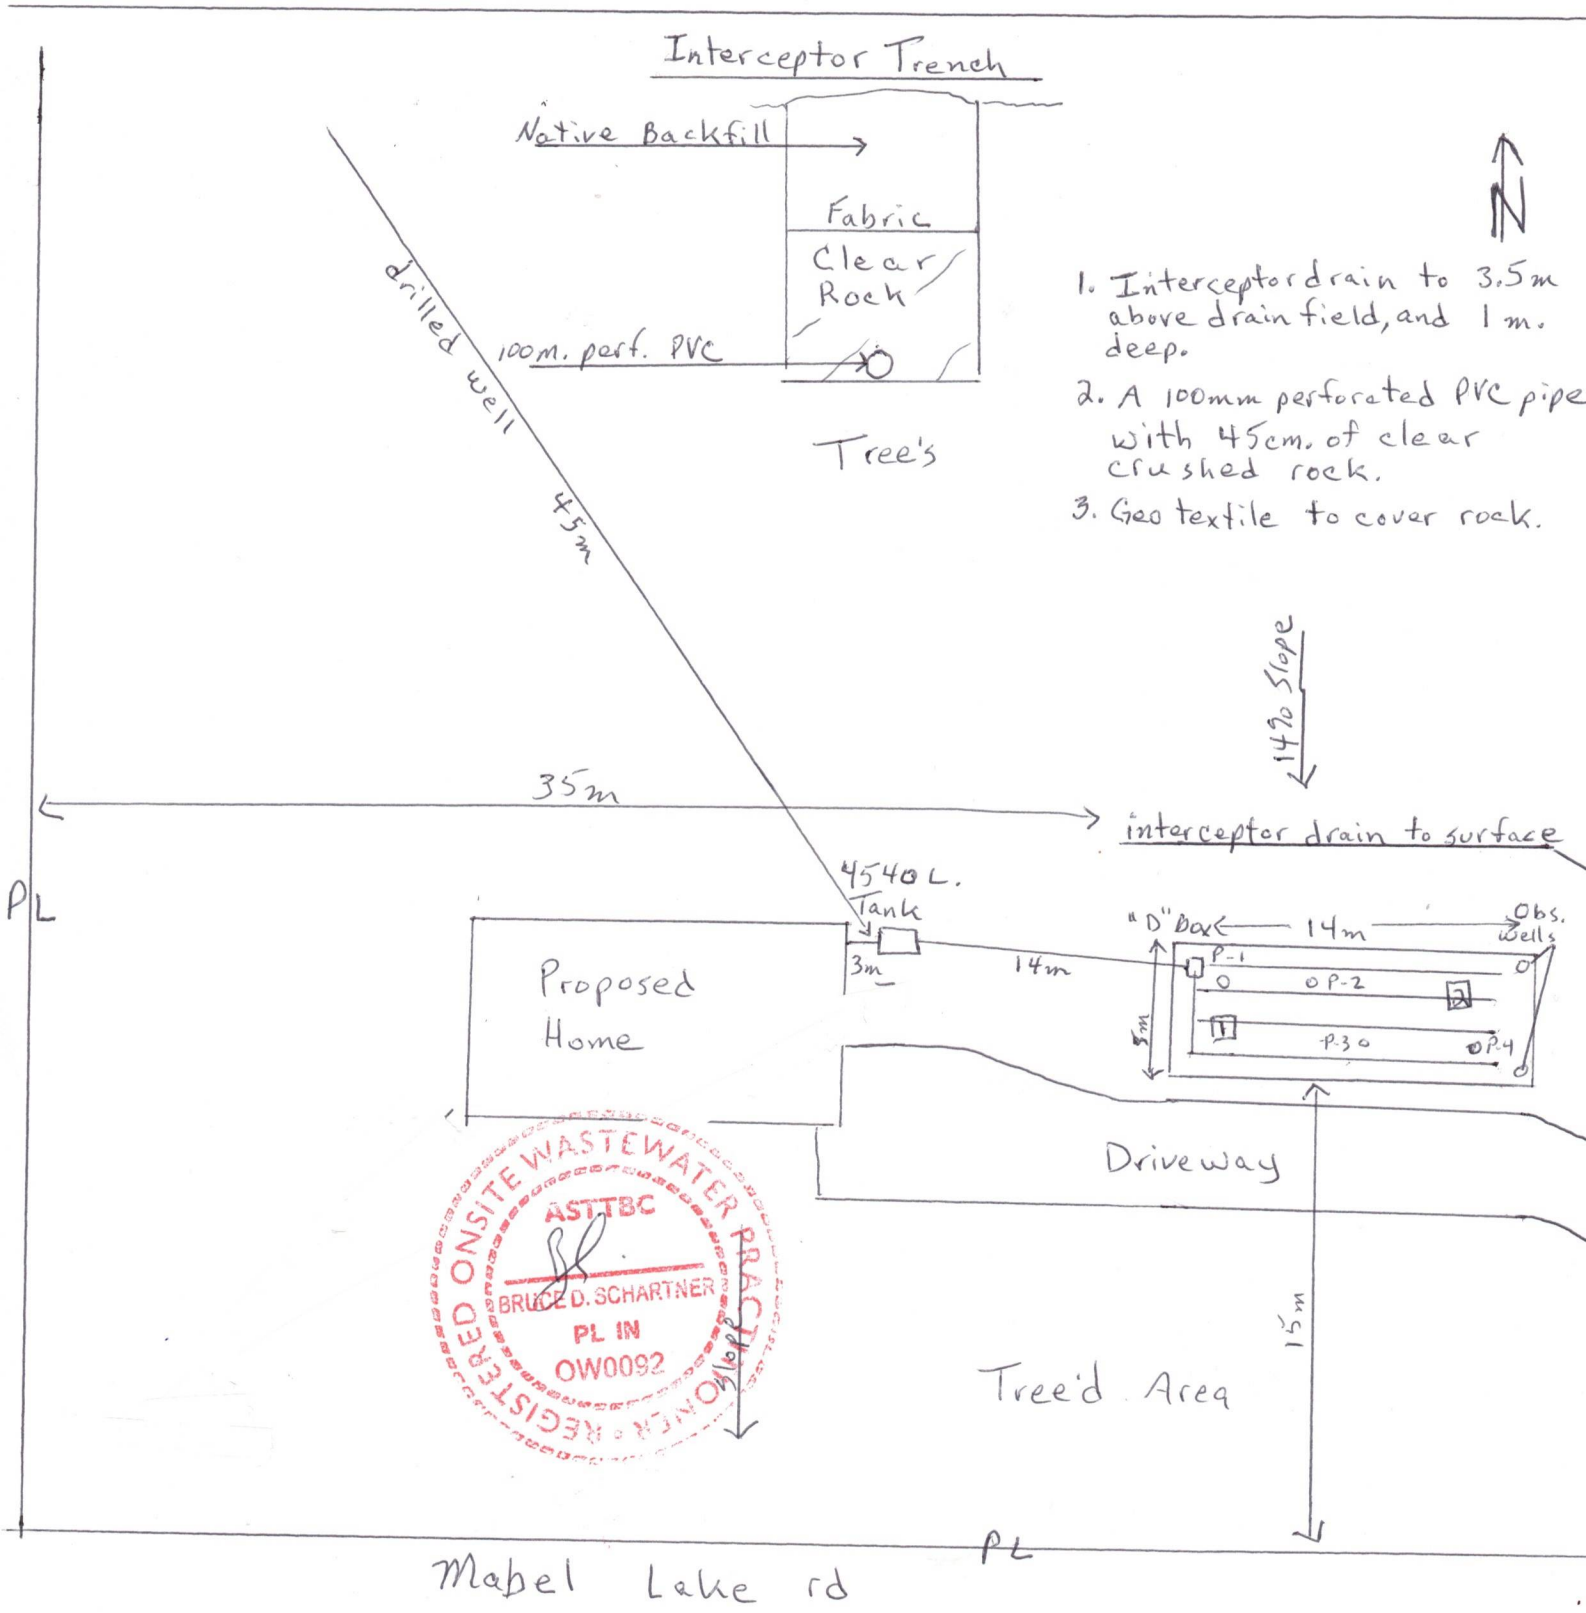 Interceptor Trench
Native Backfill
Fabric
Clear
Rock
100m. perf. PVC
Tree's
N
1. Interceptor drain to 3.5m
above drain field, and 1 m.
deep.
2. A 100mm perforated PVC pipe
with 45cm. of clear
crushed rock.
3. Geo textile to cover rock.
drilled well 45m
14% Slope
35m
interceptor drain to surface
PL
4540 L.
Tank
"D" Box
14m
Obs.
wells
3m
14m
5m
P-1
P-2
2
1
P-3
P-4
Proposed
Home
Driveway
REGISTERED ONSITE WASTEWATER PRACTITIONER
ASTTBC
BRUCE D. SCHARTNER
PL IN
OW0092
Slope
15m
Tree'd Area
PL
Mabel Lake rd